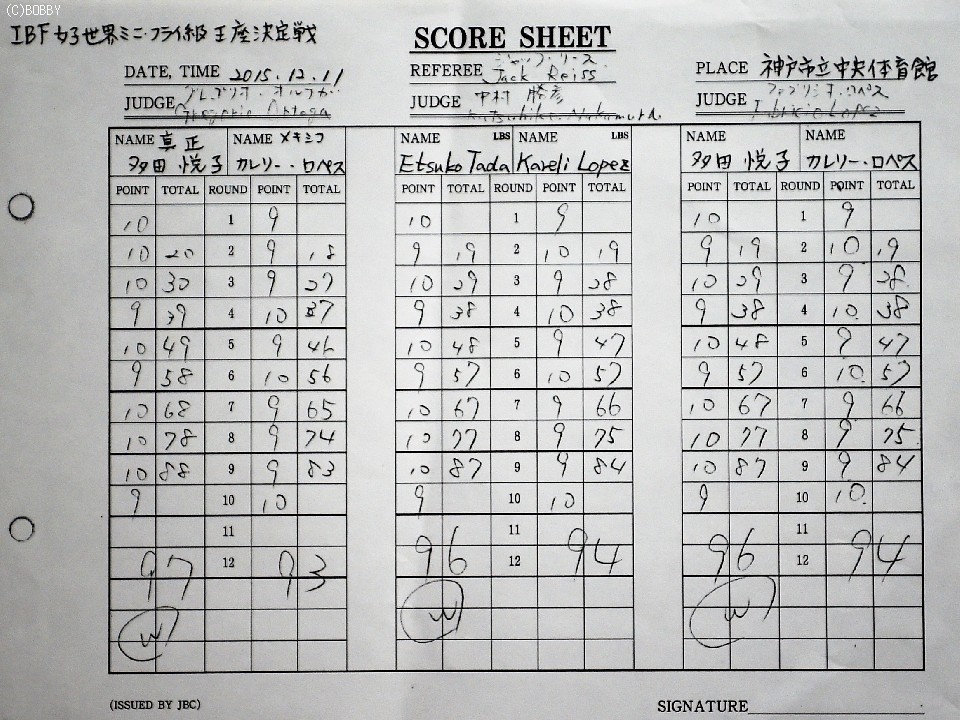 (C)BOBBY
IBF女子世界ミニ・フライ級王座決定戦
SCORE SHEET
DATE, TIME 2015.12.11
REFEREE ジャック・リース Jack Reiss
PLACE 神戸市立中央体育館
JUDGE グレゴリオ・オルテガ Gregorio Ortega
JUDGE 中村勝彦 Katsuhiko Nakamura
JUDGE ファブリシオ・ロペス Fabricio Lopez
NAME 真正 NAME メキシコ NAME LBS NAME LBS NAME NAME
多田 悦子 カレリー・ロペス Etsuko Tada Kareli Lopez 多田 悦子 カレリー・ロペス
POINT TOTAL ROUND POINT TOTAL POINT TOTAL ROUND POINT TOTAL POINT TOTAL ROUND POINT TOTAL
10 1 9 10 1 9 10 1 9
10 20 2 9 18 9 19 2 10 19 9 19 2 10 19
10 30 3 9 27 10 29 3 9 28 10 29 3 9 28
9 39 4 10 37 9 38 4 10 38 9 38 4 10 38
10 49 5 9 46 10 48 5 9 47 10 48 5 9 47
9 58 6 10 56 9 57 6 10 57 9 57 6 10 57
10 68 7 9 65 10 67 7 9 66 10 67 7 9 66
10 78 8 9 74 10 77 8 9 75 10 77 8 9 75
10 88 9 9 83 10 87 9 9 84 10 87 9 9 84
9 10 10 9 10 10 9 10 10
11 11 11
97 12 93 96 12 94 96 12 94
W W W
(ISSUED BY JBC) SIGNATURE